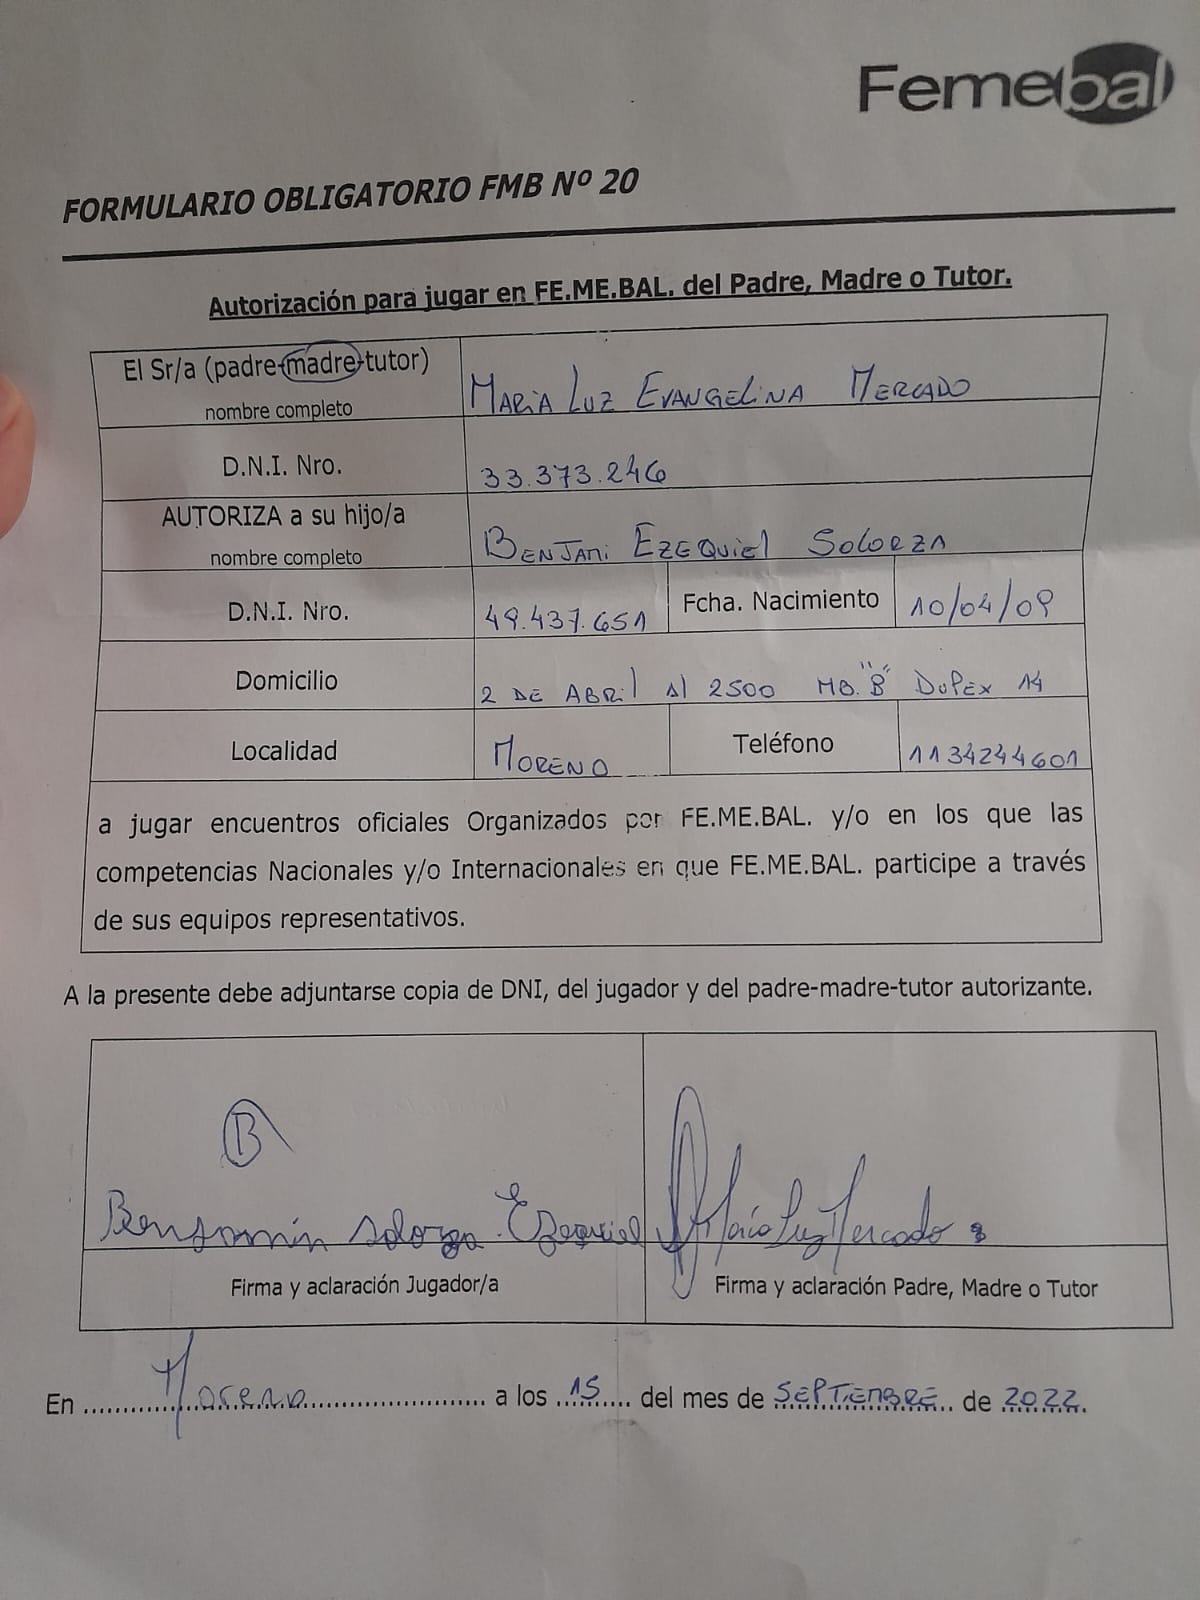 Femebal
FORMULARIO OBLIGATORIO FMB Nº 20
Autorización para jugar en FE.ME.BAL. del Padre, Madre o Tutor.
El Sr/a (padre-madre-tutor)
nombre completo
MARIA LUZ EVANGELINA MERCADO
D.N.I. Nro.
33.373.246
AUTORIZA a su hijo/a
nombre completo
BENJAMI EZEQUIEL SOLORZA
D.N.I. Nro.
49.437.651
Fcha. Nacimiento
10/04/09
Domicilio
2 DE ABRIL AL 2500 MB. "B" DUPEX 14
Localidad
MORENO
Teléfono
1134244601
a jugar encuentros oficiales Organizados por FE.ME.BAL. y/o en los que las
competencias Nacionales y/o Internacionales en que FE.ME.BAL. participe a través
de sus equipos representativos.
A la presente debe adjuntarse copia de DNI, del jugador y del padre-madre-tutor autorizante.
B
Benjamín Solorza Ezequiel
María Luz Mercado
Firma y aclaración Jugador/a
Firma y aclaración Padre, Madre o Tutor
En Moreno a los 15 del mes de SEPTIENBRE de 2022.